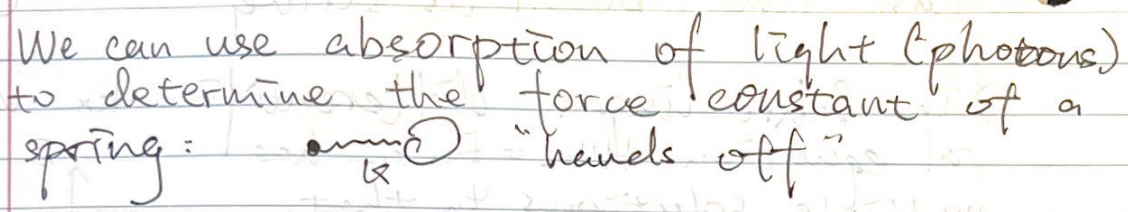 We can use absorption of light (photons)
to determine the force constant of a
spring: k "hands off"